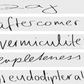 aftercomer
vermiculite
mpleteness
leucodiptera